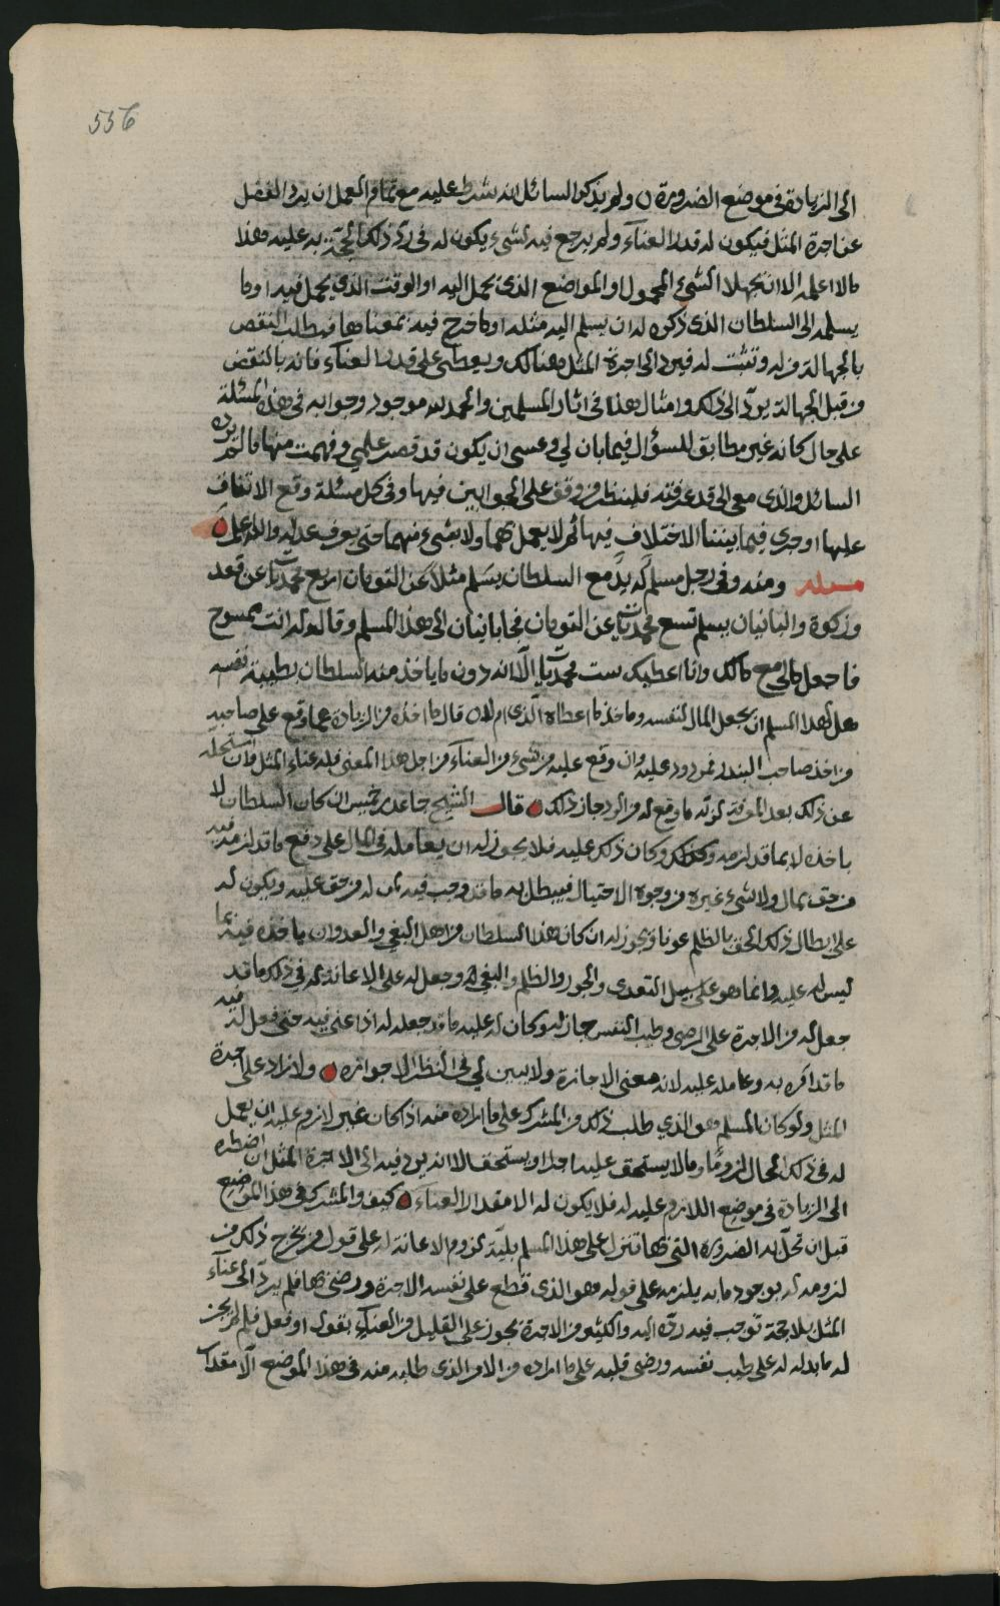 556
الى الزيادة في موضع الضرورة ولم يذكر السائل انه شرط عليه مع تمام العمل ان يرد الفضل
عن اجرة المثل فيكون له قدر العناء ولم يرجع فيه لشيء يكون له في رد ذلك الحجة به عليه وهذا
مالا اعلمه الا ان يجهلا الشيء المحمول او المواضع الذي يحمل اليه او الوقت الذي يحمل فيه او ما
يسلمه الى السلطان الذي ذكره له ان يسلم اليه مثله او ما خرج فيه بمعناها فيطلب النقض
بالجهالة من له وتثبت له فيرد الى اجرة المثل هنالك ويعطى على قدر العناء فانه بالنقض
من قبل الجهالة يرد الى ذلك وامثال هذا في اثار المسلمين والحمد لله موجود وجوابه في هذه المسئلة
على حال كانه غير مطابق للسؤال فيما بان لي وعسى ان يكون قد قصر علمي وفهمت منها ما لم يرده
السائل والذي معي الى قد عرفته فلينظر من وقف على الجوابين فيها وفي كل مسئلة وقع الاتفاق
عليها او جرى فيما بيننا الاختلاف فيها ثم لا يعمل بهما ولا بشيء منهما حتى يعرف عدله والله اعلم
مسئلة ومنه وفي رجل مسلم له يد مع السلطان يسلم مثلا عن التومان اربع محمديات عن قعد
وزكوة والبانيان يسلم تسع محمديات عن التومان فجا بانيان الى هذا المسلم وقال له انت ممسوح
فاجعل مالي مع مالك وانا اعطيك ست محمديات الا انه دون ما ياخذ منه السلطان بطيبة نفسه
هل لهذا المسلم ان يجعل المال لنفسه وماخذ ما اعطاه الذي ام لا قال ما اخذه من الزيادة عما وقع على صاحبه
من اخذ صاحب البندر فمردود عليه وان وقع عليه من شيء من العناء من اجل هذا المعنى فله عناء المثل وان استحله
عن ذلك بعد المعرفة لرده ما وقع له من الرد جاز ذلك قال الشيخ جاعد بن خميس ان كان السلطان لا
ياخذه الا بما قد لزمه وكذلك وكان ذلك عليه فلا يجوز له ان يعامله في المال على دفع ما قد لزمه فيه
من حق بمال ولا شيء غيره من وجوه الاحتيال فيبطل به ما قد وجب فيه لمن له من حق عليه ويكون له
على ابطال ذلك الحق بالظلم عونا ويجوز له ان كان هذا السلطان من اهل البغي والعدوان ياخذه فيه بما
ليس له عليه وانما هو على سبيل التعدي والجور والظلم والبغي له وجعل له على الاعانة له في ذلك ما قد
جعل له من الاجرة على الرضى وطيب النفس جاز له وكان له عليه ما قد جعله له اذا عني فيه حتى فعل له فيه
ما قد امره به وعامله عليه لانه معنى الاجازة ولا يبين لي في النظر الا جوازه ولا زاد على اجرة
المثل ولو كان المسلم هو الذي طلب ذلك من المشرك على ما اراده منه اذا كان غير لازم عليه ان يعمل
له في ذلك الحال لزوما ومالا يستحق عليه اجرا ويستحق الا انه يرد فيه الى الاجرة المثل ان اضطره
الى الزيادة في موضع اللازم عليه له فلا يكون له الا مقدار العناء كيف والمشرك في هذا الموضع
قبل ان تحل به الضرورة التي بها تنزل على هذا المسلم بلية لزوم الاعانة له على قول من يخرج ذلك من
لزومه له بوجود ما به يلزمه على قوله هو الذي قطع على نفسه الاجرة ورضي بها فلم يرد الى عناء
المثل بلا حجة توجب فيه رده اليه والكثير من الاجرة يجوز على القليل من العناء بقول او فعل فلم لم يجز
له ما بدله له على طيب نفسه ورضى قلبه على ما اراده من الامر الذي طلبه منه في هذا الموضع الا مقدار